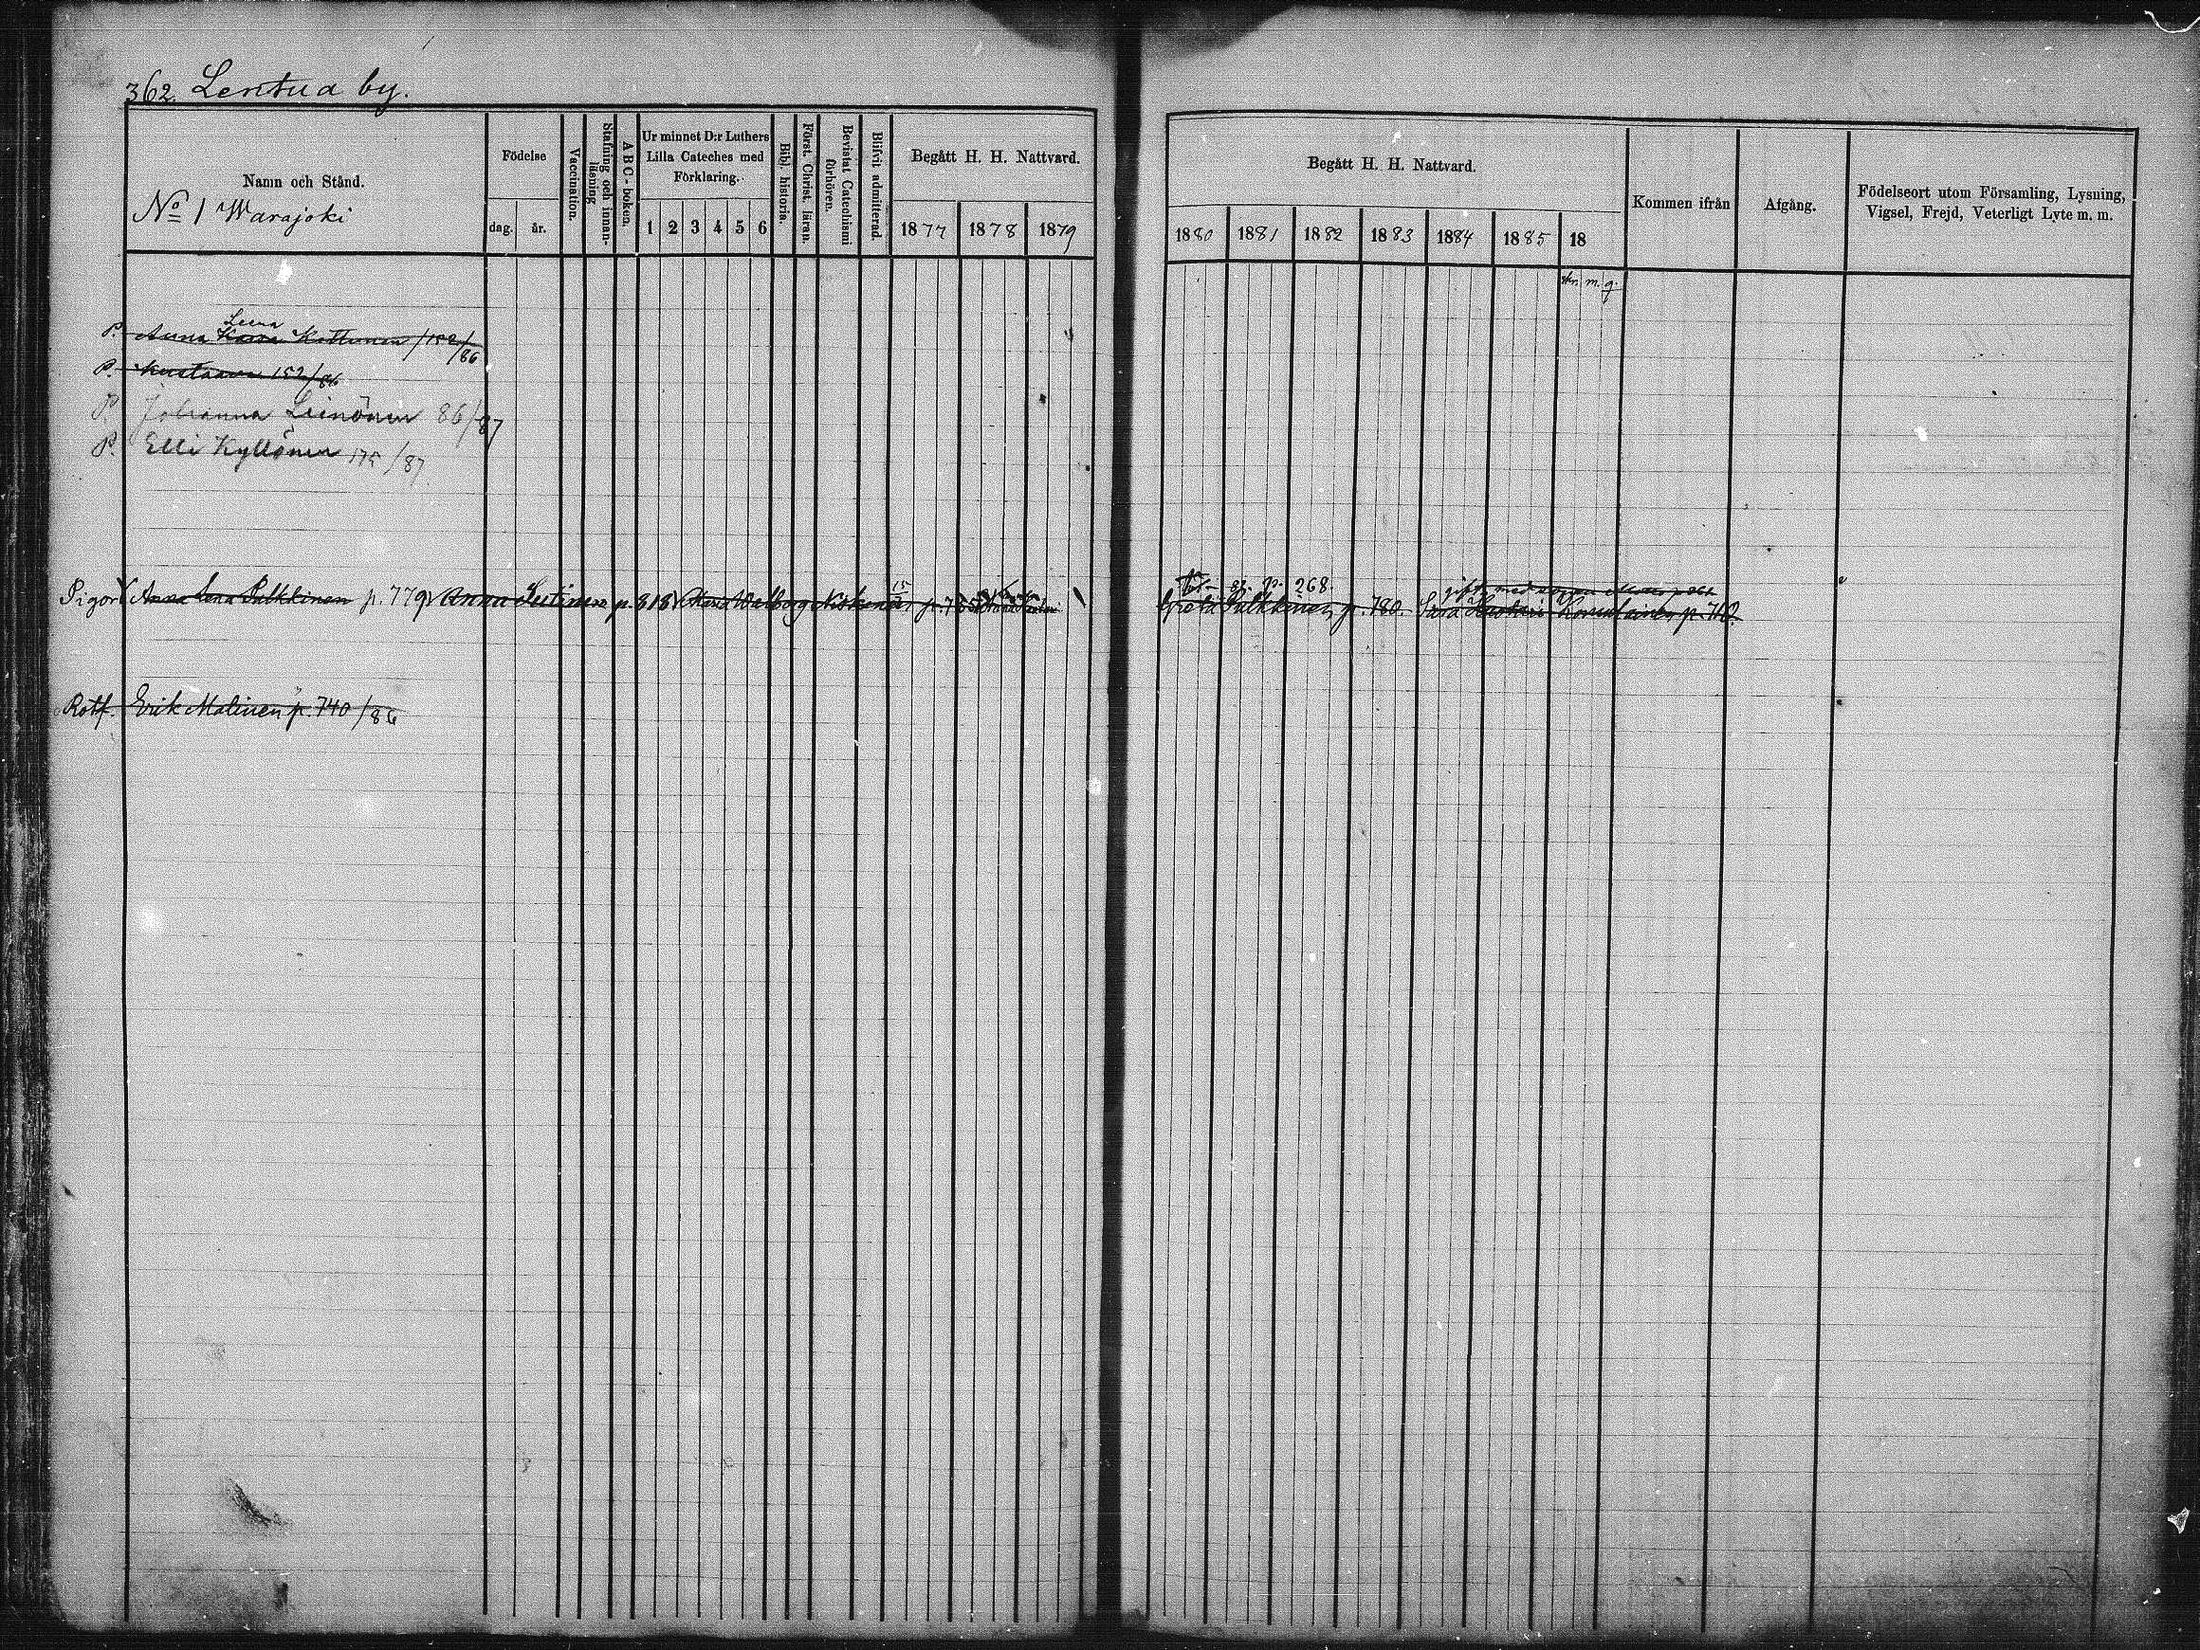 362. Lentua by.
Namn och Stånd.
No 1 Warajoki
Födelse
dag. år.
Vaccination.
Stafning och innanläsning
A B C-boken.
Ur minnet D:r Luthers
Lilla Cateches med
Förklaring.
1 2 3 4 5 6
Bibl. historia.
Först. Christ. läran.
Bevistat Catechismi förhören.
Blifvit admitterad.
Begått H. H. Nattvard.
1877 1878 1879
Begått H. H. Nattvard.
1880 1881 1882 1883 1884 1885 18
Kommen ifrån
Afgång.
Födelseort utom Församling, Lysning,
Vigsel, Frejd, Veterligt Lyte m. m.
Leena
P. Anna Kettunen /152/86
P. Kustaava 152/86
P. Johanna Leinonen 86/87
P. Elli Kyllönen 175/87
Pigor Anna Lena Pulkkinen p. 779 Anna Leitinen p. 818 Maria Walborg Niskanen p.
p. 268.
Greta Pulkkinen p. 780. Sara
gift med
Rotf. Erik Malinen p. 740/86